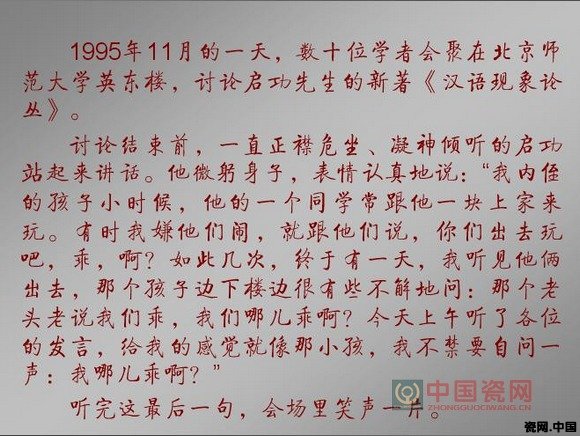 1995年11月的一天，数十位学者会聚在北京师
范大学英东楼，讨论启功先生的新著《汉语现象论
丛》。
讨论结束前，一直正襟危坐、凝神倾听的启功
站起来讲话。他微躬身子，表情认真地说：“我内侄
的孩子小时候，他的一个同学常跟他一块上家来
玩。有时我嫌他们闹，就跟他们说，你们出去玩
吧，乖，啊？如此几次，终于有一天，我听见他俩
出去，那个孩子边下楼边很有些不解地问：那个老
头老说我们乖，我们哪儿乖啊？今天上午听了各位
的发言，给我的感觉就像那小孩，我不禁要自问一
声：我哪儿乖啊？”
听完这最后一句，会场里笑声一片。
中国瓷网
ZHONGGUOCIWANG.CN
瓷网.中国